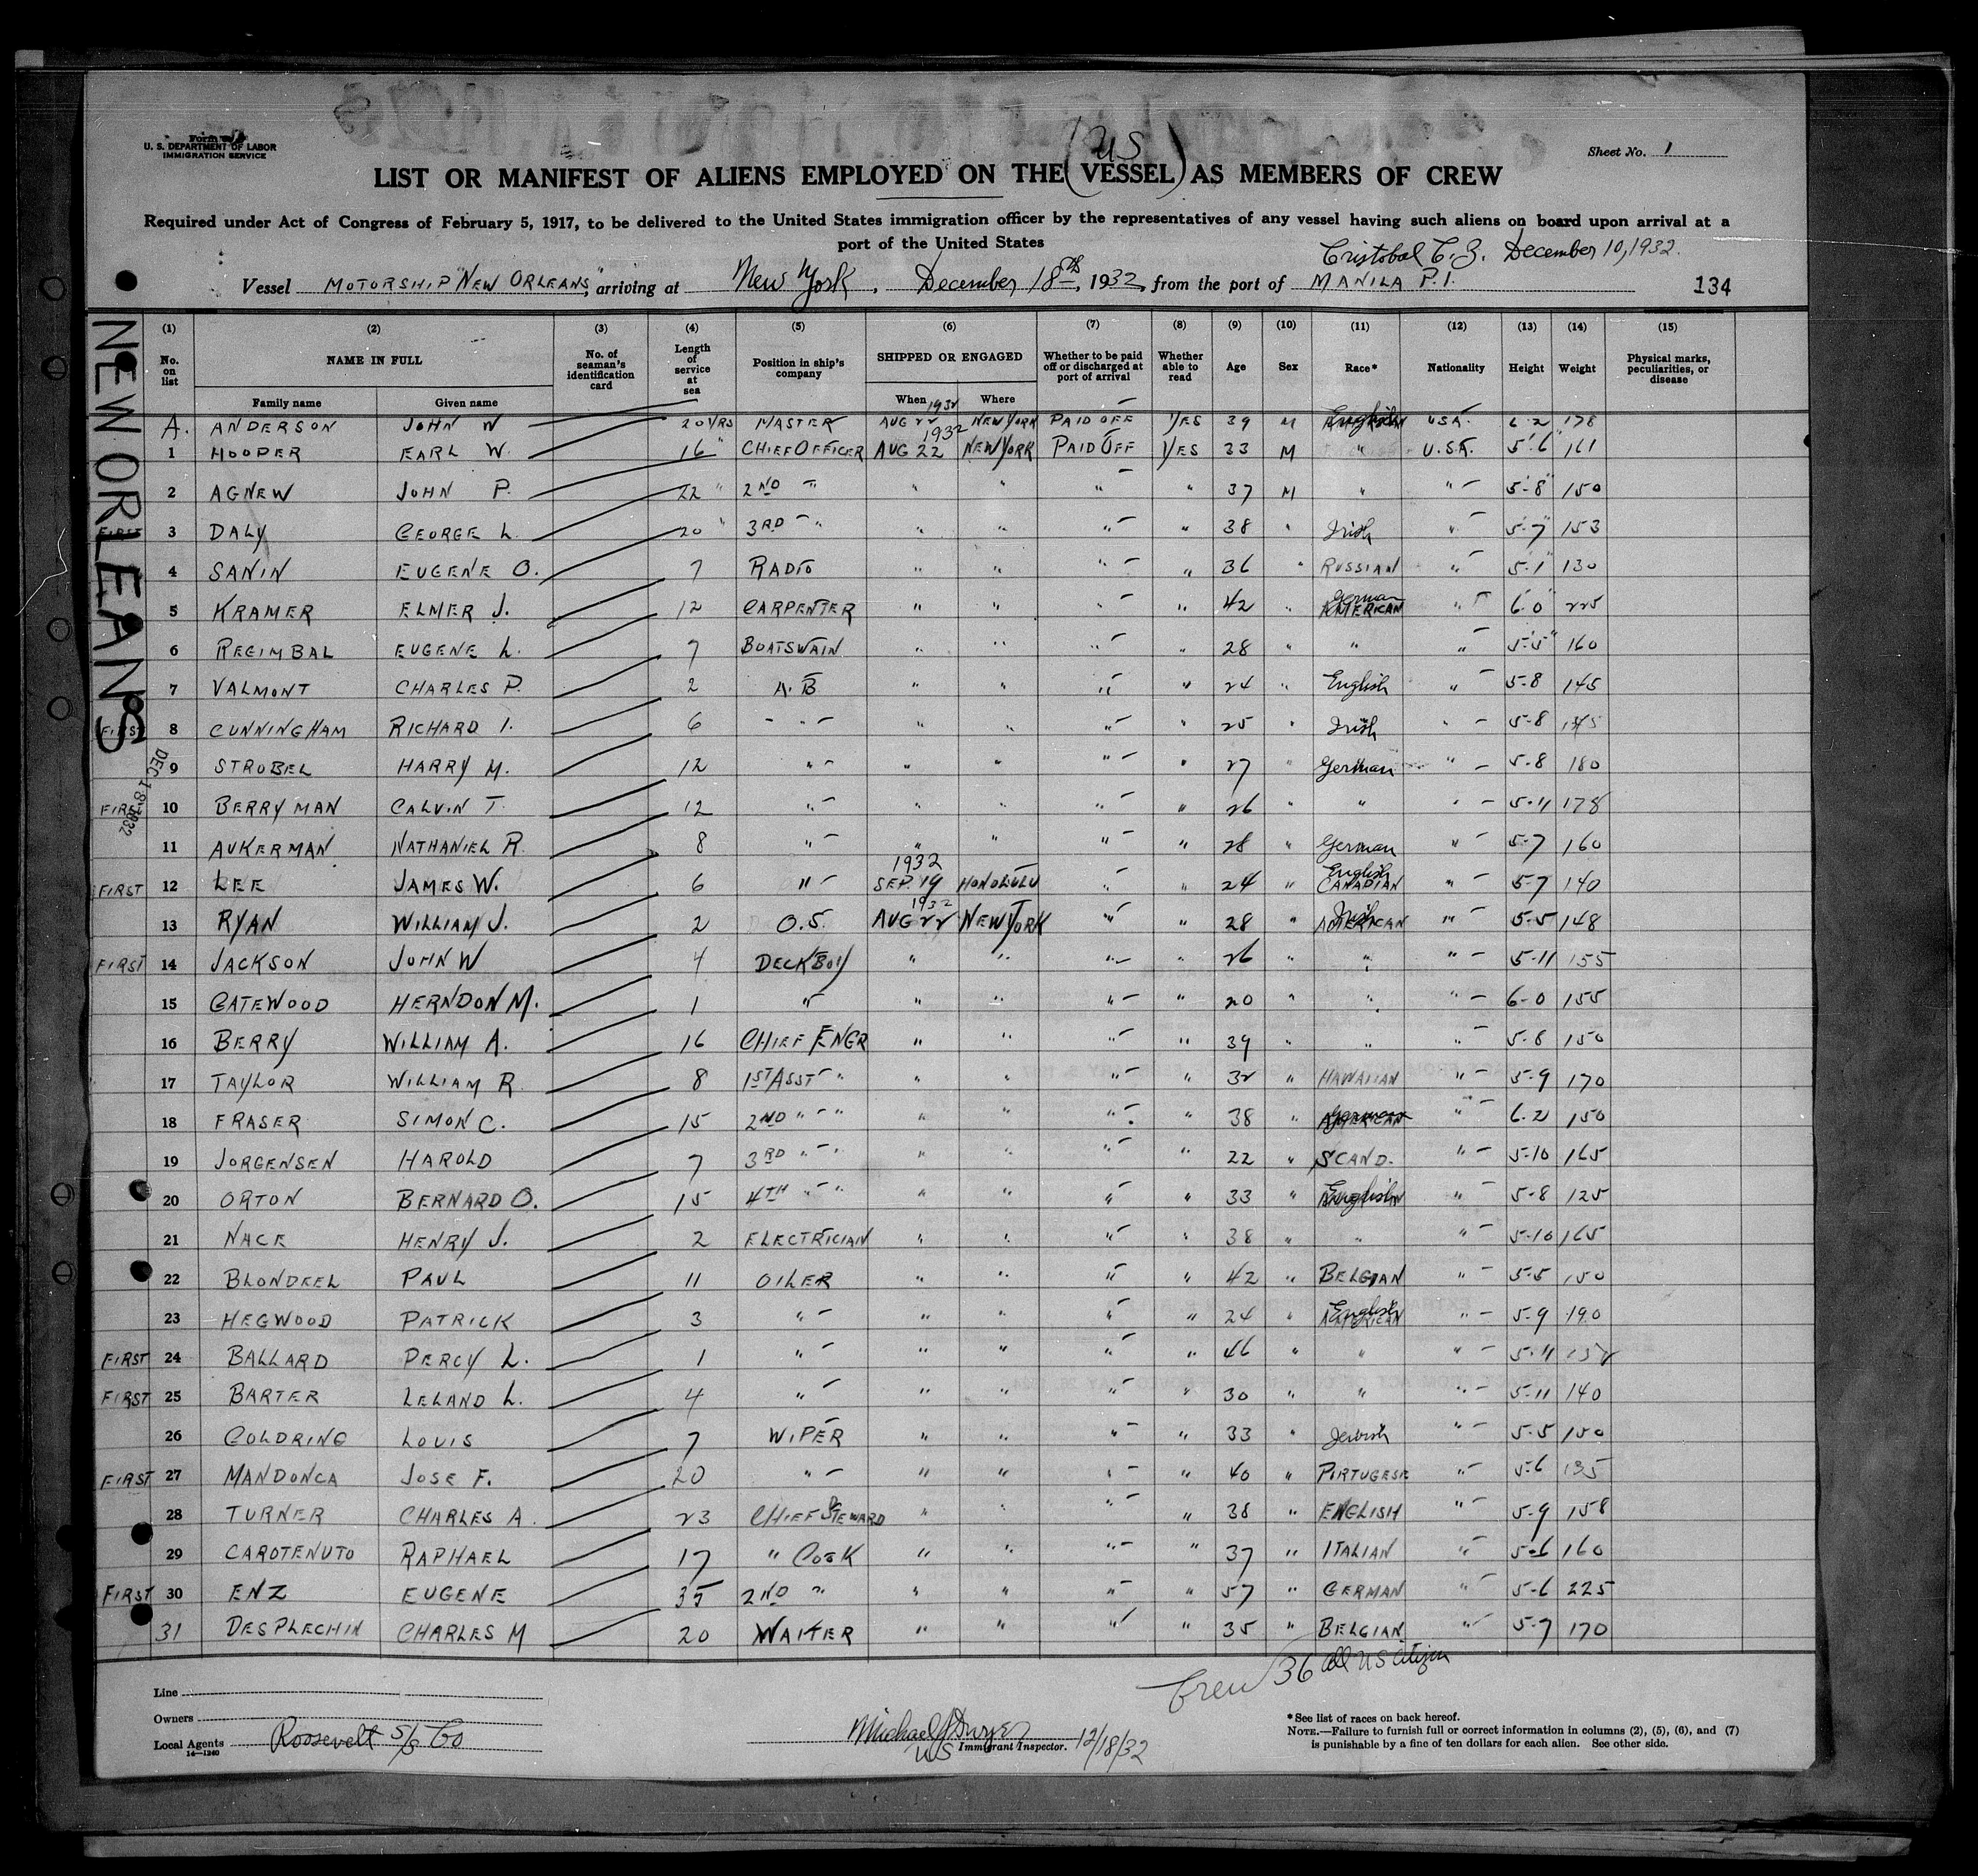 Form
U. S. DEPARTMENT OF LABOR
IMMIGRATION SERVICE
Sheet No. 1
US
LIST OR MANIFEST OF ALIENS EMPLOYED ON THE (VESSEL) AS MEMBERS OF CREW
Required under Act of Congress of February 5, 1917, to be delivered to the United States immigration officer by the representatives of any vessel having such aliens on board upon arrival at a
port of the United States
Cristobal C.Z. December 10, 1932.
Vessel MOTORSHIP "NEW ORLEANS", arriving at New York, December 18th, 1932, from the port of MANILA P.I. 134
NEW ORLEANS
DEC 18 1932
(1) (2) (3) (4) (5) (6) (7) (8) (9) (10) (11) (12) (13) (14) (15)
No. on list NAME IN FULL Family name Given name No. of seaman's identification card Length of service at sea Position in ship's company SHIPPED OR ENGAGED When Where Whether to be paid off or discharged at port of arrival Whether able to read Age Sex Race* Nationality Height Weight Physical marks, peculiarities, or disease
A. ANDERSON JOHN W 20 YRS MASTER AUG 22 1932 NEW YORK PAID OFF YES 39 M English USA. 6-2 178
1 HOOPER EARL W. 16 " CHIEF OFFICER AUG 22 1932 NEW YORK PAID OFF YES 33 M " U.S.A. 5'-6" 161
2 AGNEW JOHN P. 22 " 2ND " " " " " 37 M " " 5'-8" 150
FIRST 3 DALY GEORGE L. 20 " 3RD " " " " " 38 " Irish " 5'-7" 153
4 SANIN EUGENE O. 7 RADIO " " " " 36 " RUSSIAN " 5'-1" 130
5 KRAMER ELMER J. 12 CARPENTER " " " " 42 " German AMERICAN " 6'-0" 225
6 REGIMBAL EUGENE L. 7 BOATSWAIN " " " " 28 " " " 5'-5" 160
7 VALMONT CHARLES P. 2 A.B " " " " 24 " English " 5-8 145
FIRST 8 CUNNINGHAM RICHARD I. 6 " " " " " 25 " Irish " 5-8 145
9 STROBEL HARRY M. 12 " " " " " 27 " German " 5-8 180
FIRST 10 BERRYMAN CALVIN T. 12 " " " " " 26 " " " 5-11 178
11 AUKERMAN NATHANIEL R. 8 " " " " " 28 " German " 5-7 160
FIRST 12 LEE JAMES W. 6 " 1932 SEP. 19 HONOLULU " " 24 " English CANADIAN " 5-7 140
13 RYAN WILLIAM J. 2 O.S. 1932 AUG 22 NEW YORK " " 28 " Irish AMERICAN " 5-5 148
FIRST 14 JACKSON JOHN W 4 DECK BOY " " " " 26 " " " 5-11 155
15 GATEWOOD HERNDON M. 1 " " " " " 20 " " " 6-0 155
16 BERRY WILLIAM A. 16 CHIEF ENGR " " " " 39 " " " 5-8 150
17 TAYLOR WILLIAM R 8 1ST ASST " " " " " 32 " HAWAIIAN " 5-9 170
18 FRASER SIMON C. 15 2ND " " " " " " 38 " AMERICAN " 6-2 150
19 JORGENSEN HAROLD 7 3RD " " " " " " 22 " SCAND. " 5-10 165
20 ORTON BERNARD O. 15 4TH " " " " " " 33 " English " 5-8 125
21 NACE HENRY J. 2 ELECTRICIAN " " " " 38 " " " 5-10 165
22 BLONDEEL PAUL 11 OILER " " " " 42 " BELGIAN " 5-5 150
23 HEGWOOD PATRICK 3 " " " " " 24 " English AMERICAN " 5-9 190
FIRST 24 BALLARD PERCY L. 1 " " " " " 46 " " " 5-11
FIRST 25 BARTER LELAND L. 4 " " " " " 30 " " " 5-11 140
26 GOLDRING LOUIS 7 WIPER " " " " 33 " Jewish " 5-5 150
FIRST 27 MANDONCA JOSE F. 20 " " " " " 40 " PORTUGESE " 5-6 135
28 TURNER CHARLES A. 23 CHIEF STEWARD " " " " 38 " ENGLISH " 5-9 158
29 CAROTENUTO RAPHAEL 17 " COOK " " " " 37 " ITALIAN " 5-6 160
FIRST 30 ENZ EUGENE 35 2ND " " " " " 57 " GERMAN " 5-6 225
31 DESPLECHIN CHARLES M 20 WAITER " " " " 35 " BELGIAN " 5-7 170
Crew 36 all US citizen
Line
Owners
Local Agents Roosevelt S/S Co
14—1240
Michael J Dwyer
US Immigrant Inspector. 12/18/32
* See list of races on back hereof.
NOTE.—Failure to furnish full or correct information in columns (2), (5), (6), and (7)
is punishable by a fine of ten dollars for each alien. See other side.